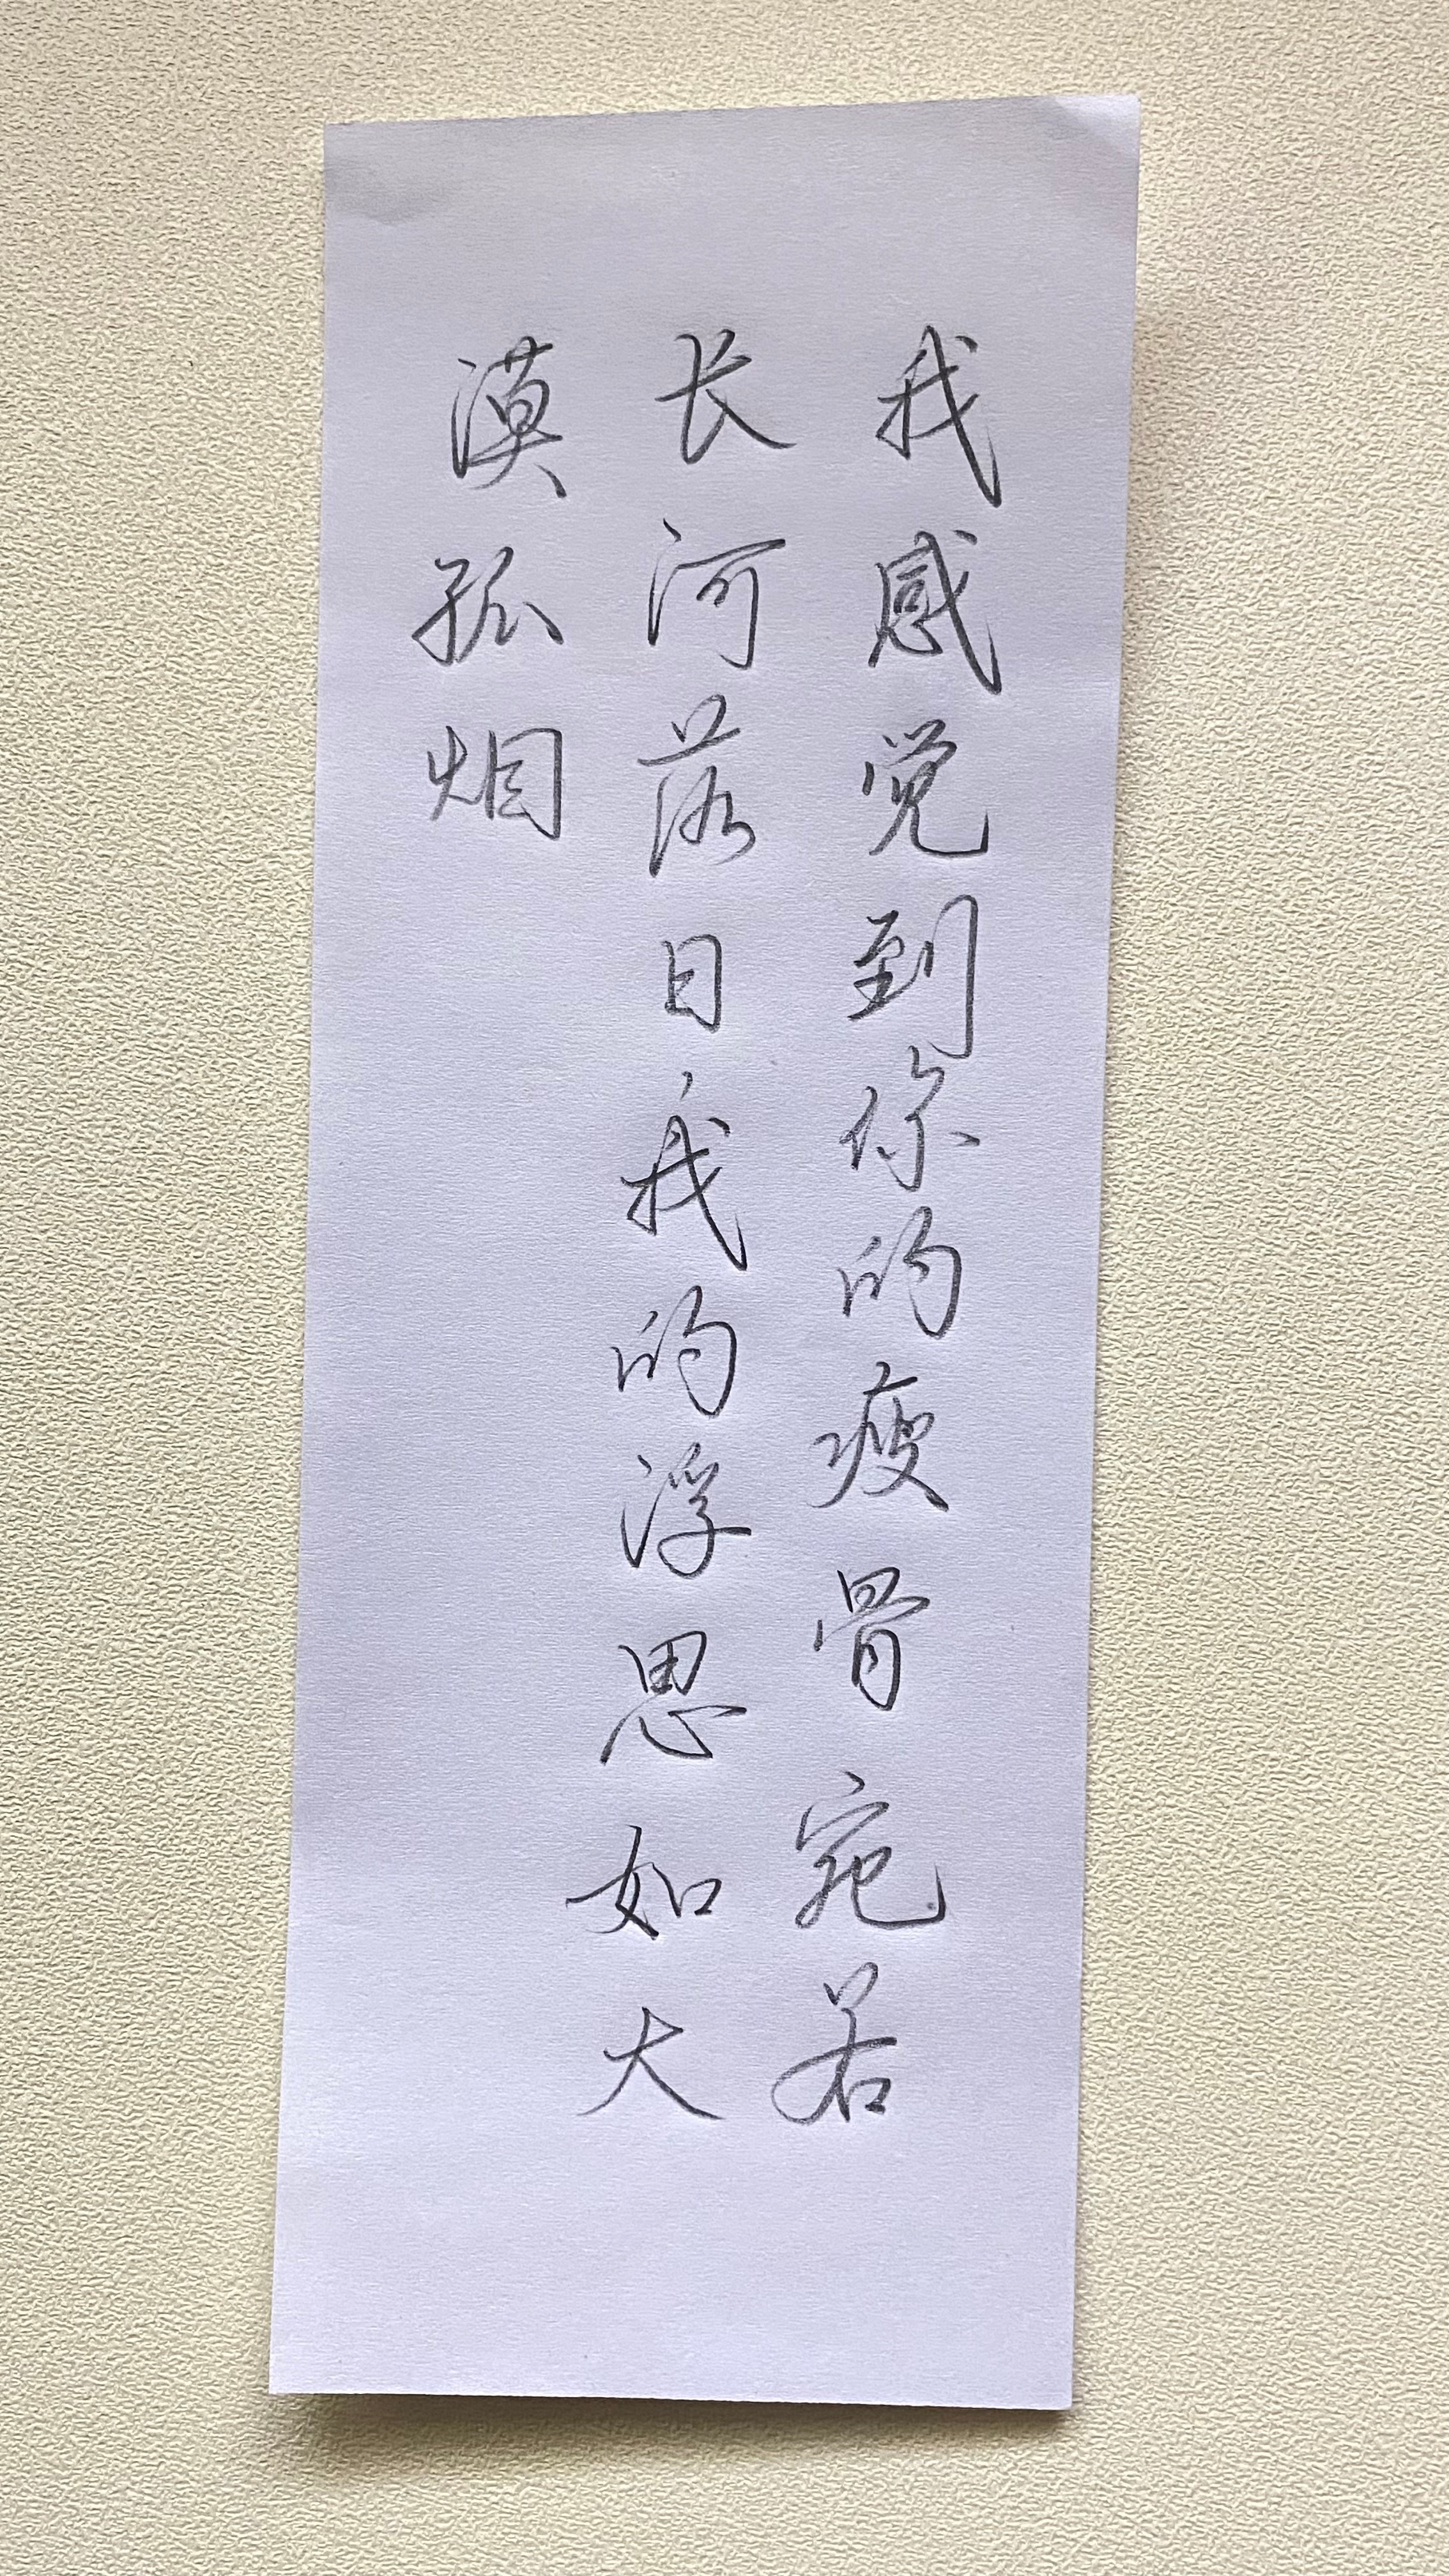 我感觉到你的瘦骨宛若
长河落日，我的浮思如大
漠孤烟